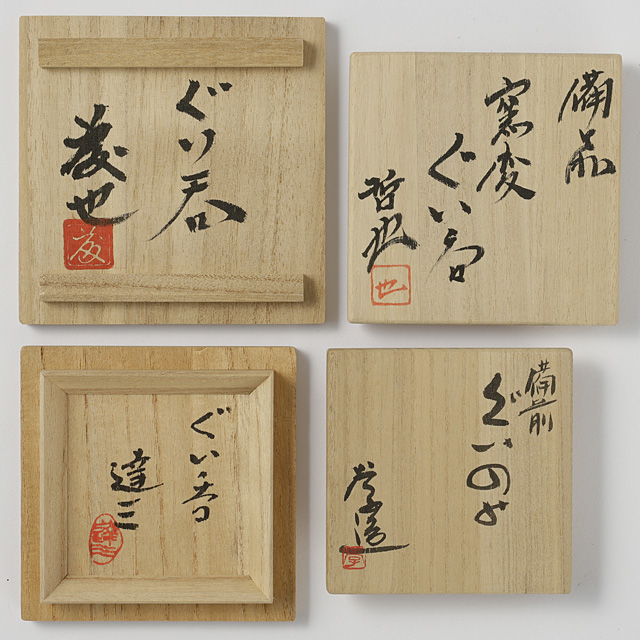 ぐい呑
也
備前
窯変
ぐい呑
哲也
也
ぐい呑
達三
備前
ぐいのみ